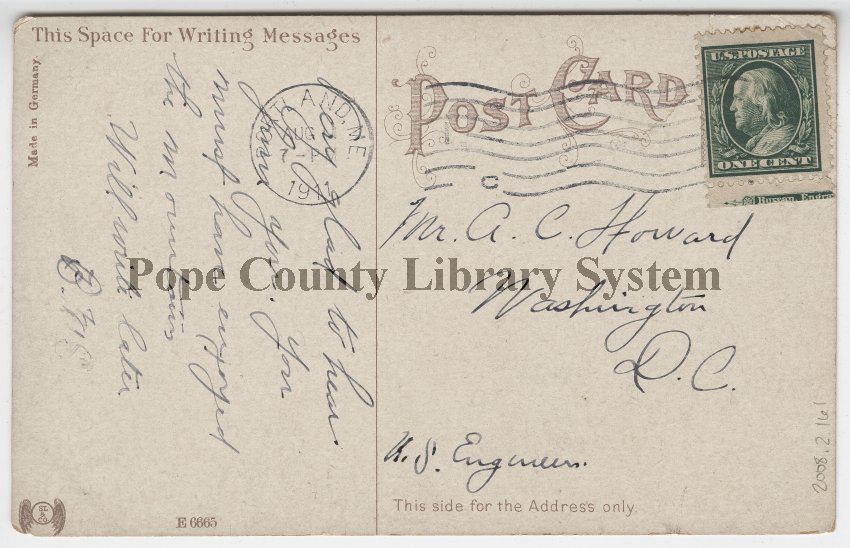 This Space For Writing Messages
Made in Germany.
Very glad to hear
from you. You
must have enjoyed
the mountains
Will write later
POST CARD
AND, ME
191
C
U.S. POSTAGE
ONE CENT
Bureau, Engra
Mr. A. C. Howard
Washington
D. C.
U. S. Engineers.
Pope County Library System
This side for the Address only.
E 6665
2008.2.161